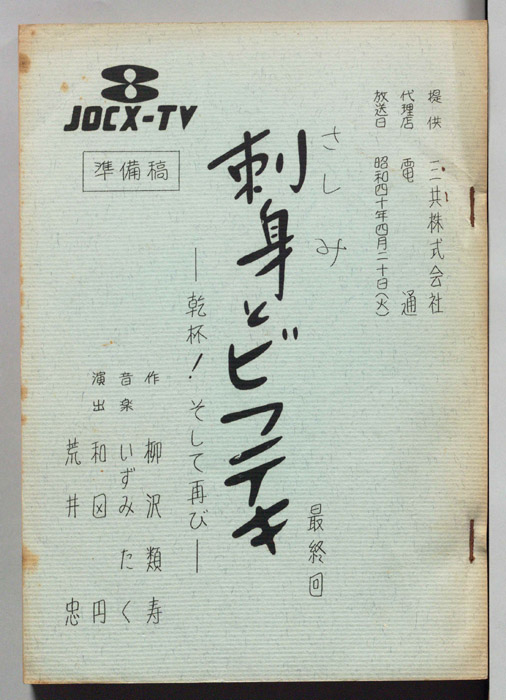 JOCX-TV
準備稿
提供 三共株式会社
代理店 電通
放送日 昭和四十年四月二十日(火)
さしみ
刺身とビフテキ
最終回
―乾杯!そして再び―
作 柳沢類寿
音楽 いずみたく
演出 和田円
荒井忠